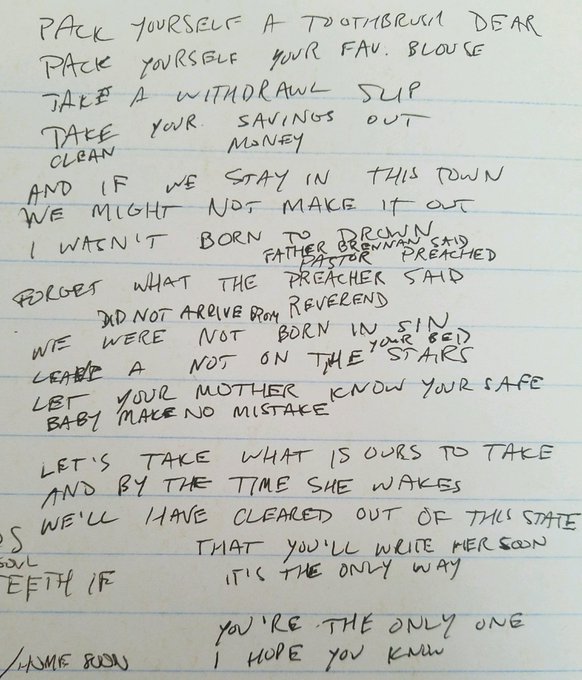 PACK YOURSELF A TOOTHBRUSH DEAR
PACK YOURSELF YOUR FAV. BLOUSE
TAKE A WITHDRAWL SLIP
TAKE YOUR SAVINGS OUT
CLEAN MONEY
AND IF WE STAY IN THIS TOWN
WE MIGHT NOT MAKE IT OUT
I WASN'T BORN TO DROWN
FATHER BRENNAN SAID
PASTOR PREACHED
FORGET WHAT THE PREACHER SAID
DID NOT ARRIVE FROM REVEREND
WE WERE NOT BORN IN SIN
YOUR BED
LEAVE A NOT ON THE STAIRS
LET YOUR MOTHER KNOW YOUR SAFE
BABY MAKE NO MISTAKE
LET'S TAKE WHAT IS OURS TO TAKE
AND BY THE TIME SHE WAKES
WE'LL HAVE CLEARED OUT OF THIS STATE
THAT YOU'LL WRITE HER SOON
SOUL
TEETH IF IT'S THE ONLY WAY
YOU'RE THE ONLY ONE
HOME SOON I HOPE YOU KNOW